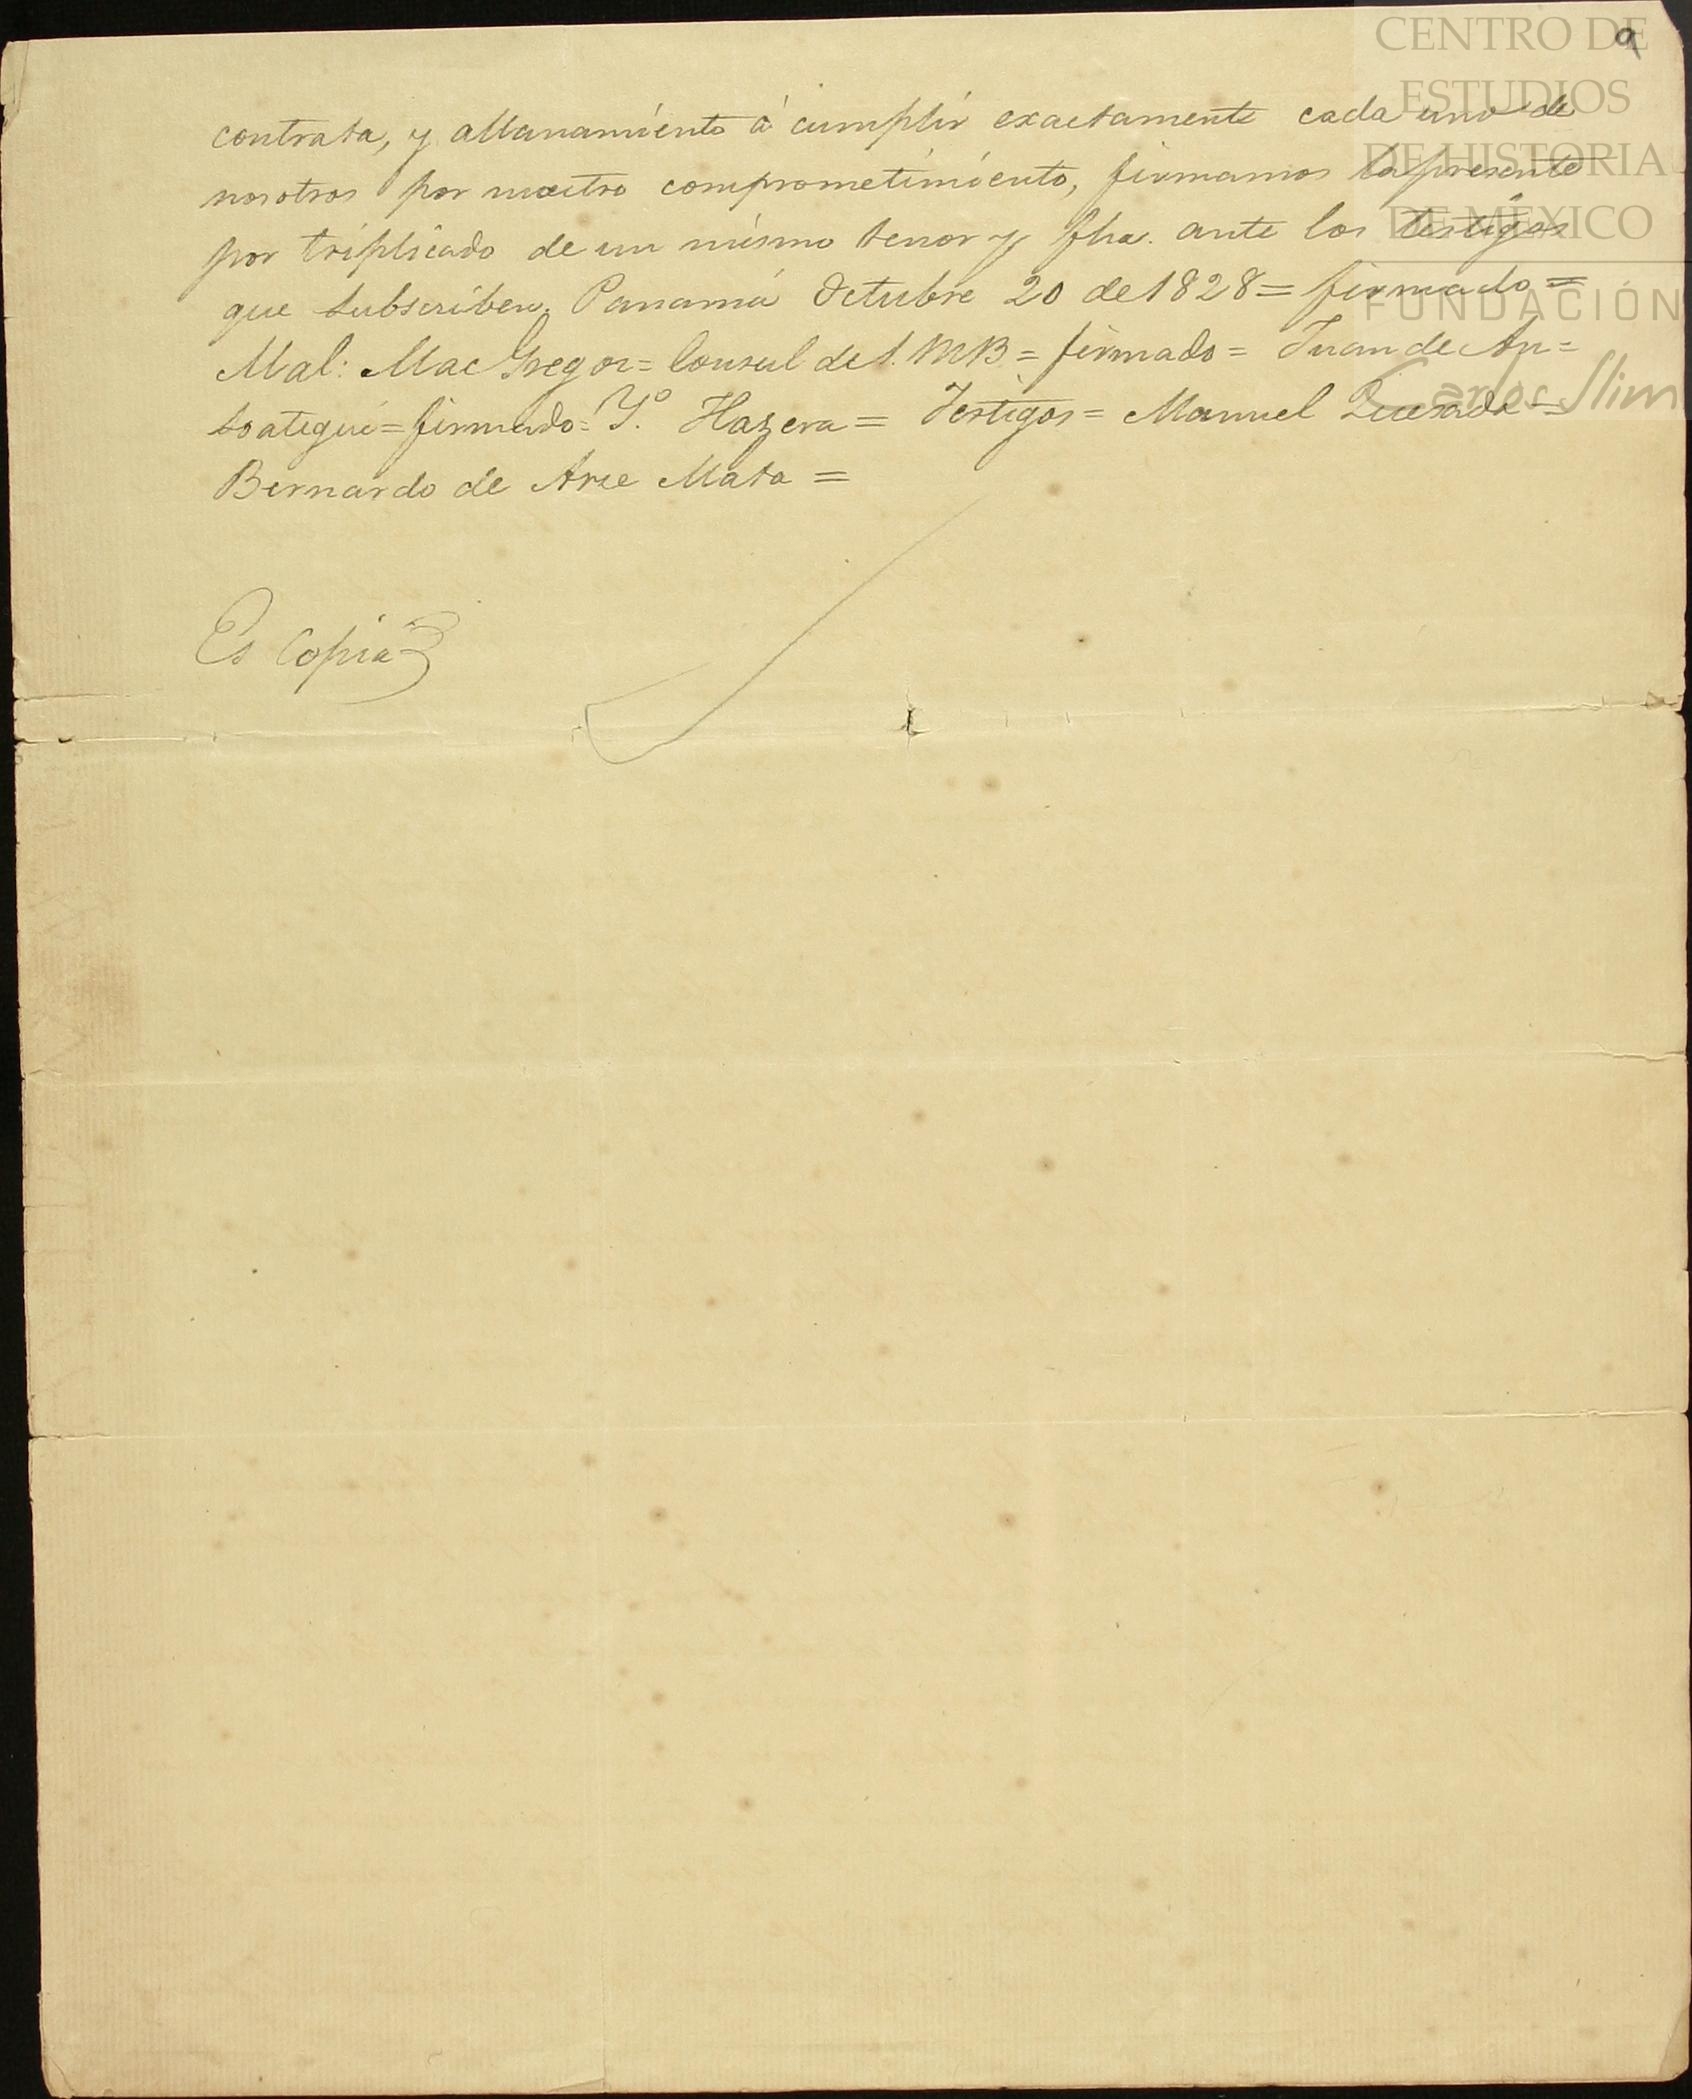 9
contrata, y allanamiento á cumplir exactamente cada uno de
nosotros por nuestro comprometimiento, firmamos la presente
por triplicado de un mismo tenor y fha. ante los testigos
que subscriben. Panamá Octubre 20 de 1828 = firmado =
Mal: MacGregor = Consul de S. M B = firmado = Juan de An=
soategui = firmado = Y.º Hazera = Testigos = Manuel Quesada =
Bernardo de Arce Mata =
Es Copia
CENTRO DE
ESTUDIOS
DE HISTORIA
DE MÉXICO
FUNDACIÓN
Carlos Slim